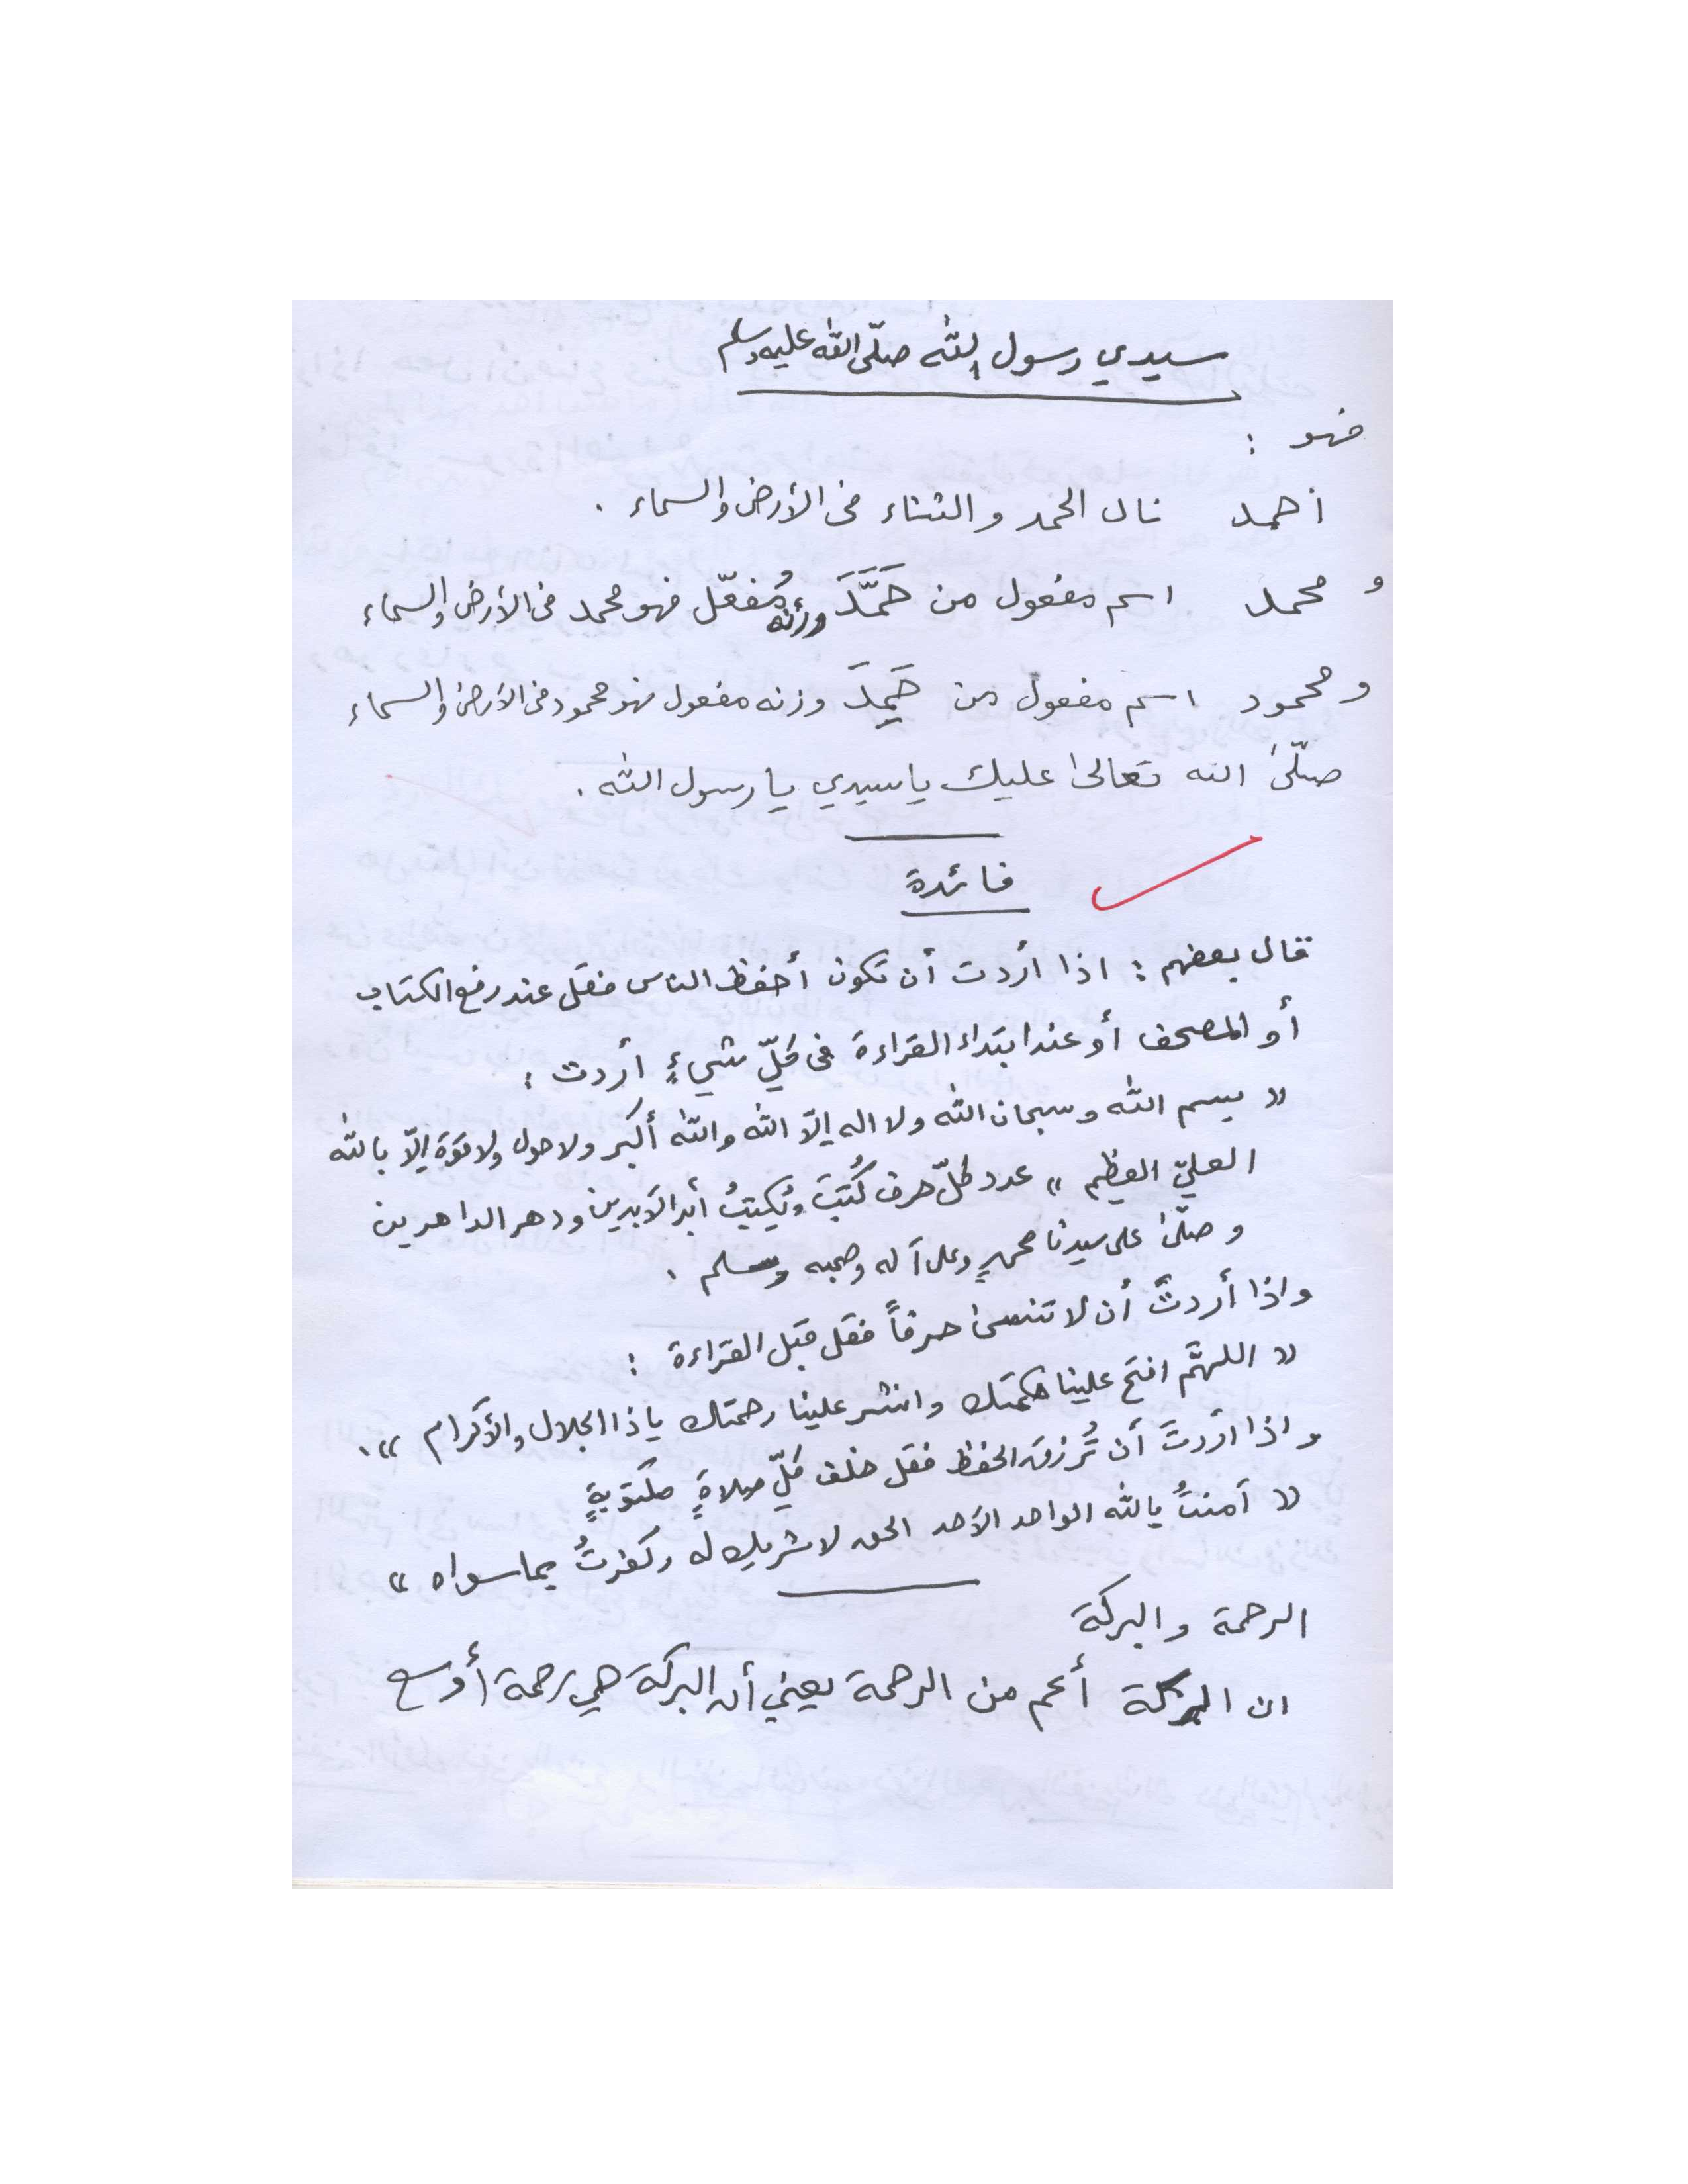 سيدي رسول الله صلّى الله عليه وسلم
فهو :
أحمد نال الحمد والثناء في الأرض والسماء .
و محمد اسم مفعول من حَمَّدَ وزنه مُفعّل فهو محمد في الأرض والسماء
و محمود اسم مفعول من حَمِدَ وزنه مفعول فهو محمود في الأرض والسماء
صلّىٰ الله تعالىٰ عليك يا سيدي يا رسول الله .
فائدة
قال بعضهم : اذا أردت أن تكون أحفظ الناس فقل عند رفع الكتاب
أو المصحف أو عند ابتداء القراءة في كلِّ شيءٍ أردت :
« بسم الله وسبحان الله ولا اله إلّا الله والله أكبر ولا حول ولا قوّة إلّا بالله
العليّ العظيم » عدد كلّ حرف كُتِبَ ويُكتبُ أبد الآبدين ودهر الداهرين
و صلّىٰ على سيدنا محمدٍ وعلى آله وصحبه وسلم .
واذا أردتَ أن لا تنسىٰ حرفاً فقل قبل القراءة :
« اللهمَّ افتح علينا حكمتك وانشر علينا رحمتك يا ذا الجلال والأكرام » .
واذا أردتَ أن تُرزق الحفظ فقل خلف كلِّ صلاةٍ مكتوبةٍ
« آمنتُ بالله الواحد الأحد الحق لا شريك له وكفرتُ بما سواه »
الرحمة والبركة
ان البركة أعم من الرحمة يعني أن البركة هي رحمة أوسع